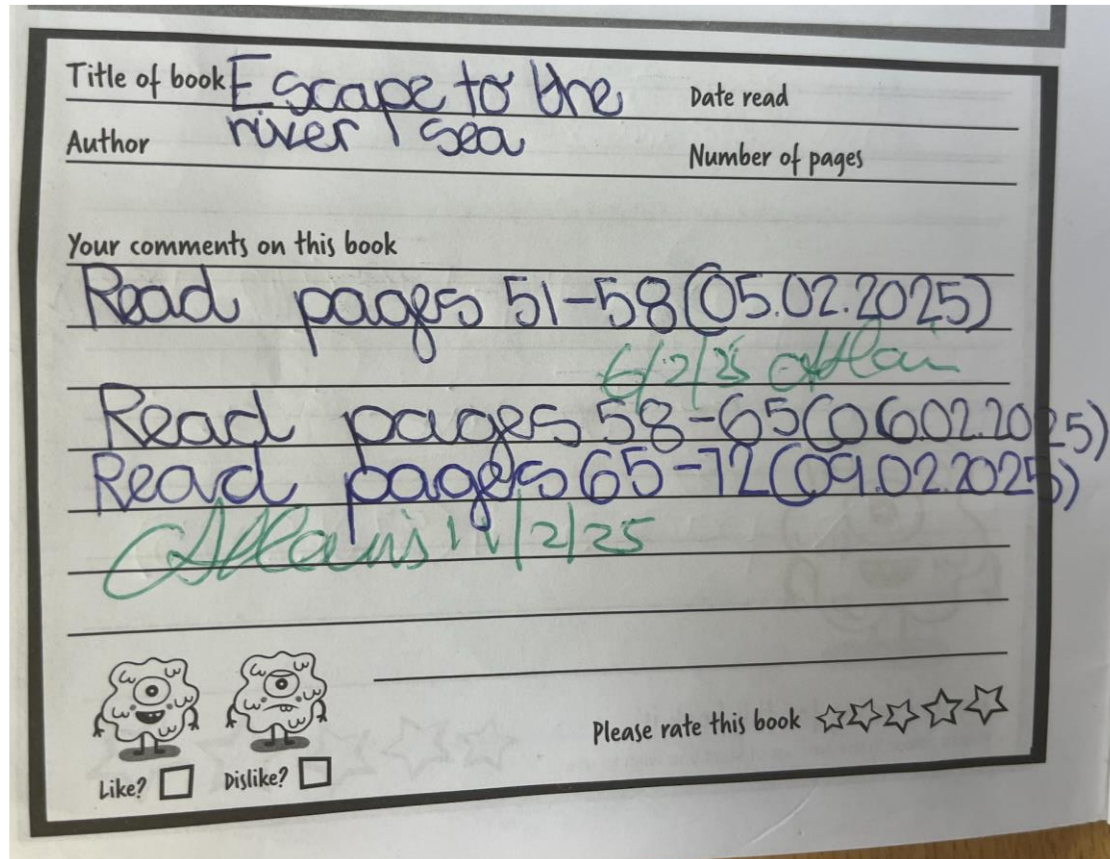 Title of book Escape to the Date read
Author river sea Number of pages
Your comments on this book
Read pages 51-58 (05.02.2025)
6/2/25
Read pages 58-65 (06.02.2025)
Read pages 65-72 (09.02.2025)
11/2/25
Please rate this book
Like? Dislike?